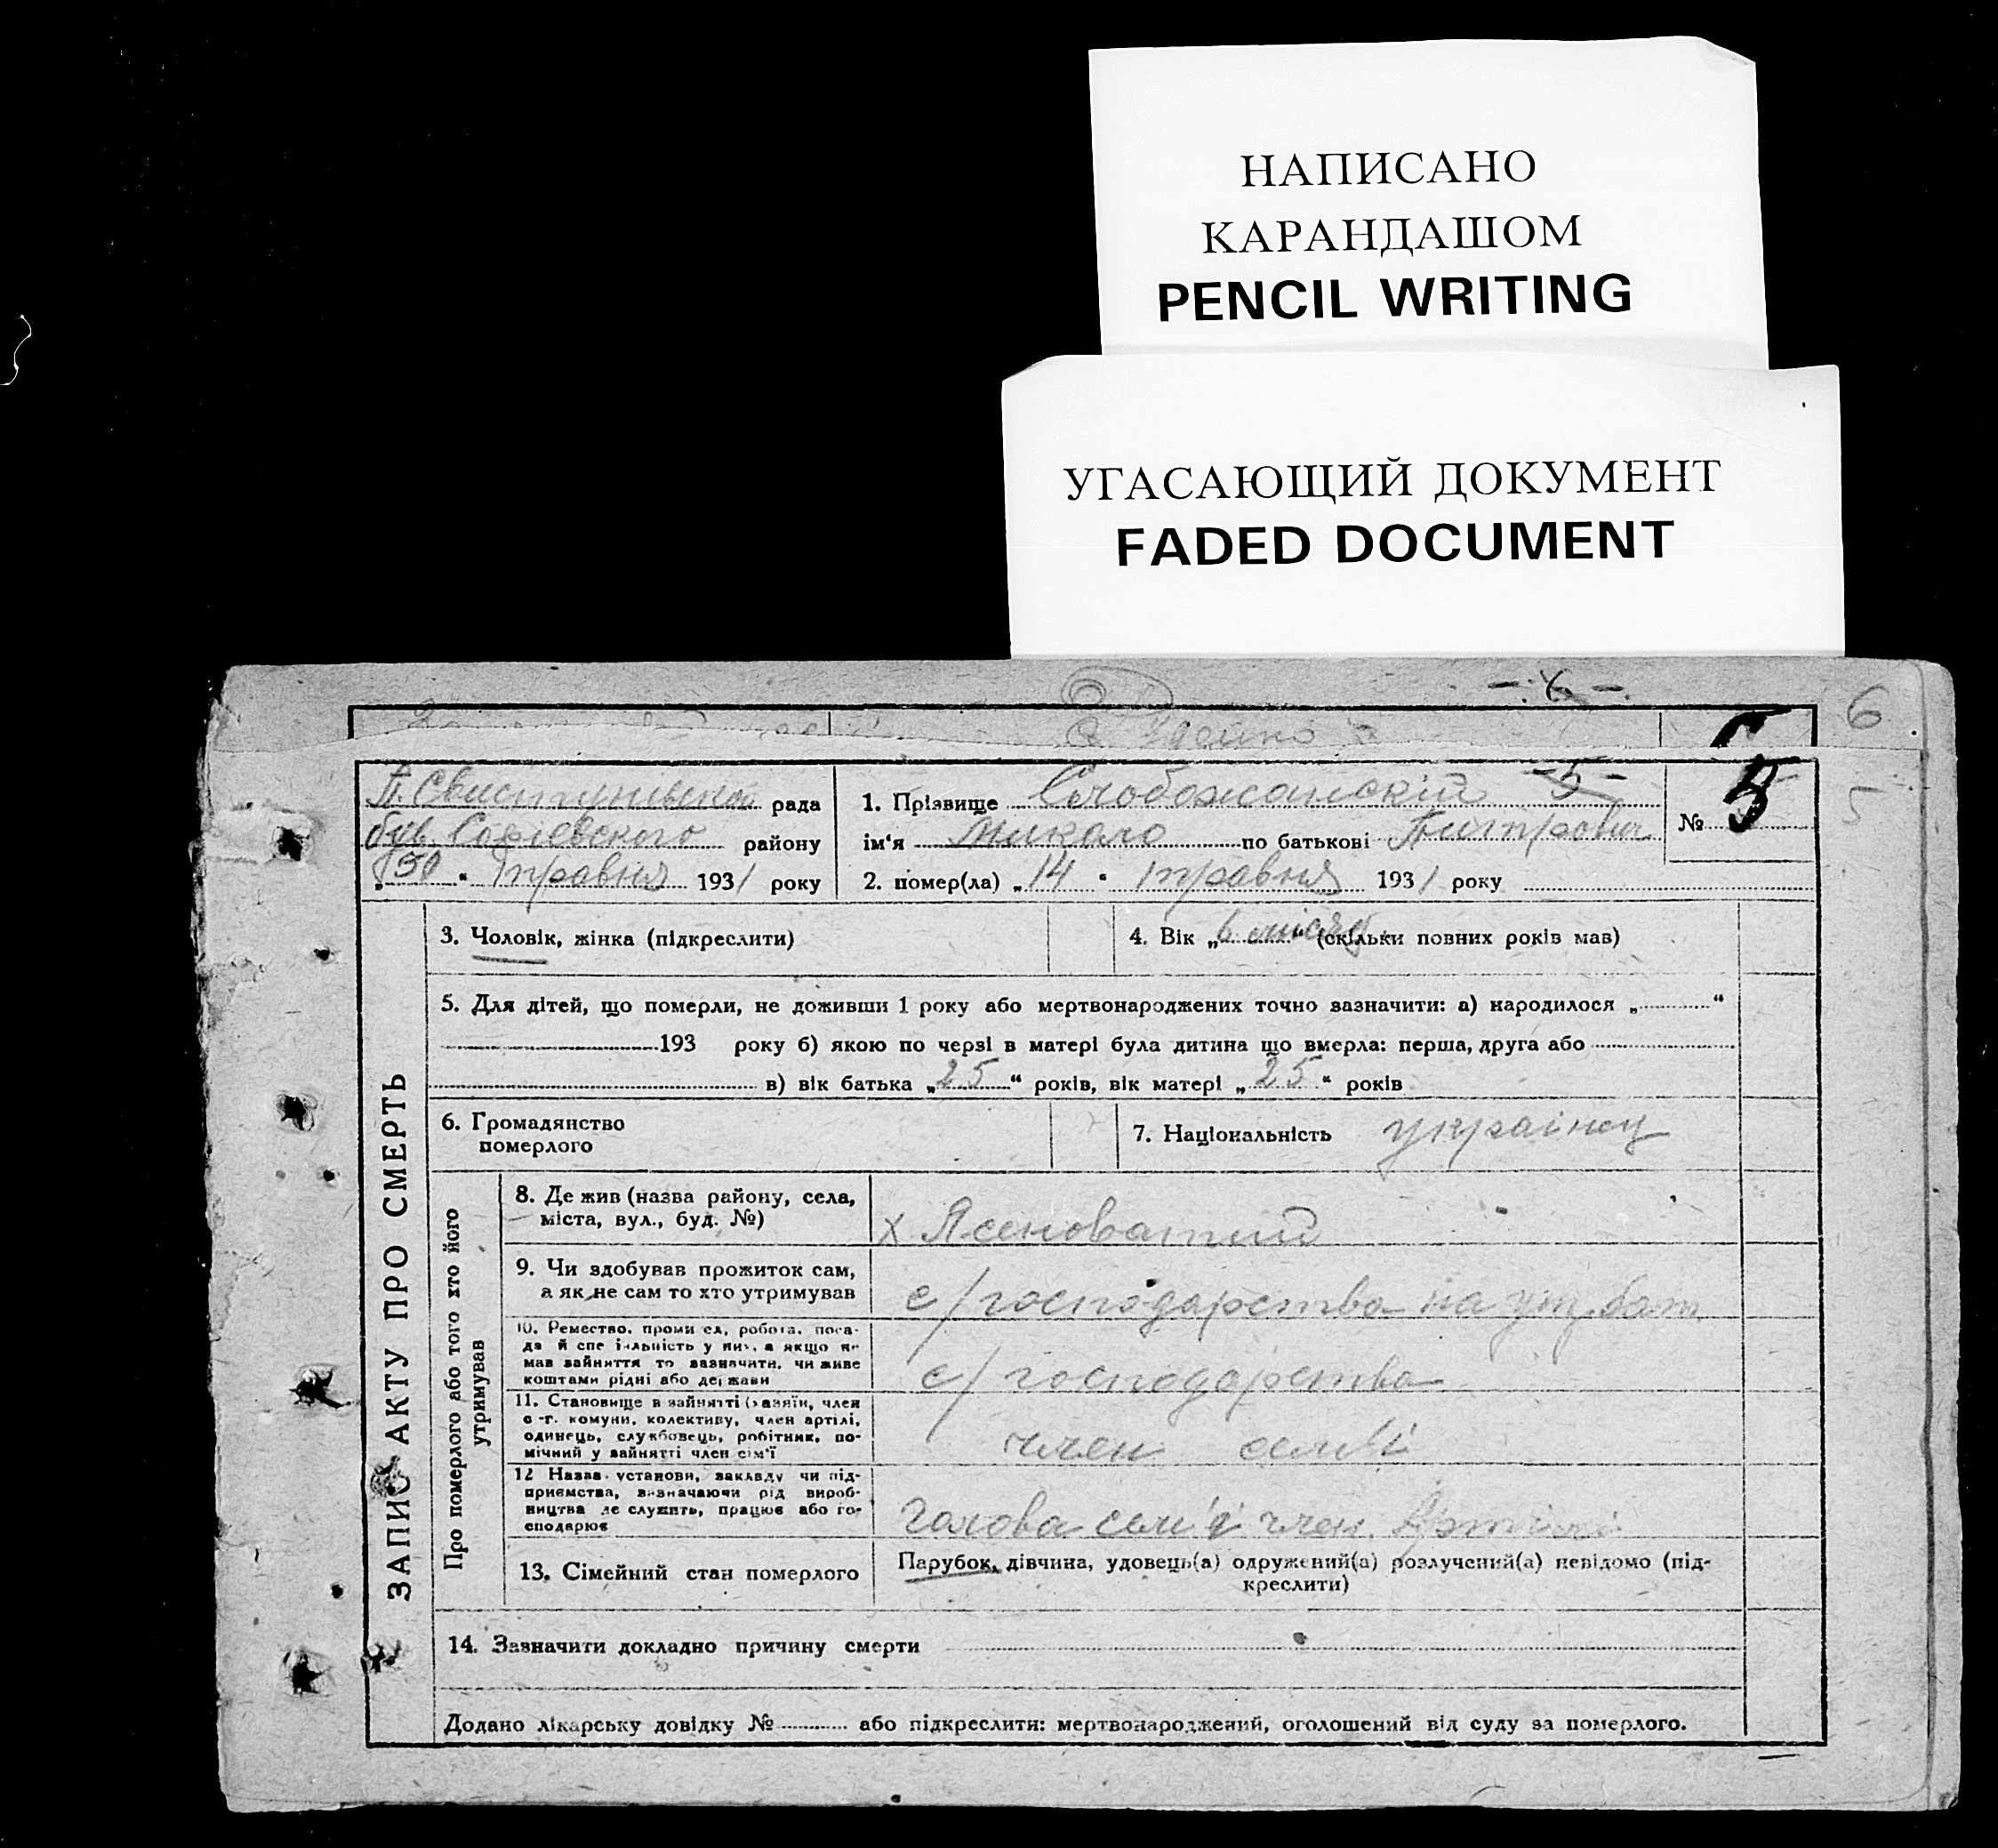 НАПИСАНО
КАРАНДАШОМ
PENCIL WRITING
УГАСАЮЩИЙ ДОКУМЕНТ
FADED DOCUMENT
- 6 -
6
рада
1. Прізвище Слобожанскій -5-
№ 5
5
був. Софієвского району
ім'я Микола по батькові
"30" травня 1931 року
2. помер(ла) "14" травня 1931 року
ЗАПИС АКТУ ПРО СМЕРТЬ
3. Чоловік, жінка (підкреслити)
4. Вік „6 місяц“ (скільки повних років мав)
5. Для дітей, що померли, не доживши 1 року або мертвонароджених точно зазначити: а) народилося „ “
193 року б) якою по черзі в матері була дитина що вмерла: перша, друга або
в) вік батька „25“ років, вік матері „25“ років
6. Громадянство
померлого
7. Національність українец
Про померлого або того хто його
утримував
8. Де жив (назва району, села,
міста, вул., буд. №)
х Ясеноватий
9. Чи здобував прожиток сам,
а як не сам то хто утримував
с/господарства на ут. бат.
10. Ремество, промисел, робота, поса-
да й спеціяльність у них, а якщо не
мав зайняття то зазначити, чи живе
коштами рідні або держави
с/господарства
11. Становище в зайнятті (хазяїн, член
с.-г. комуни, колективу, член артілі,
одинець, службовець, робітник, по-
мічний у зайнятті член сім'ї
член сем'ї
12 Назва установи, закладу чи під-
приємства, визначаючи рід вироб-
ництва де служить, працює або го-
сподарює
Голова сем'ї член Артілі
13. Сімейний стан померлого
Парубок, дівчина, удовець(а) одружений(а) розлучений(а) невідомо (під-
креслити)
14. Зазначити докладно причину смерти
Додано лікарську довідку № або підкреслити: мертвонароджений, оголошений від суду за померлого.